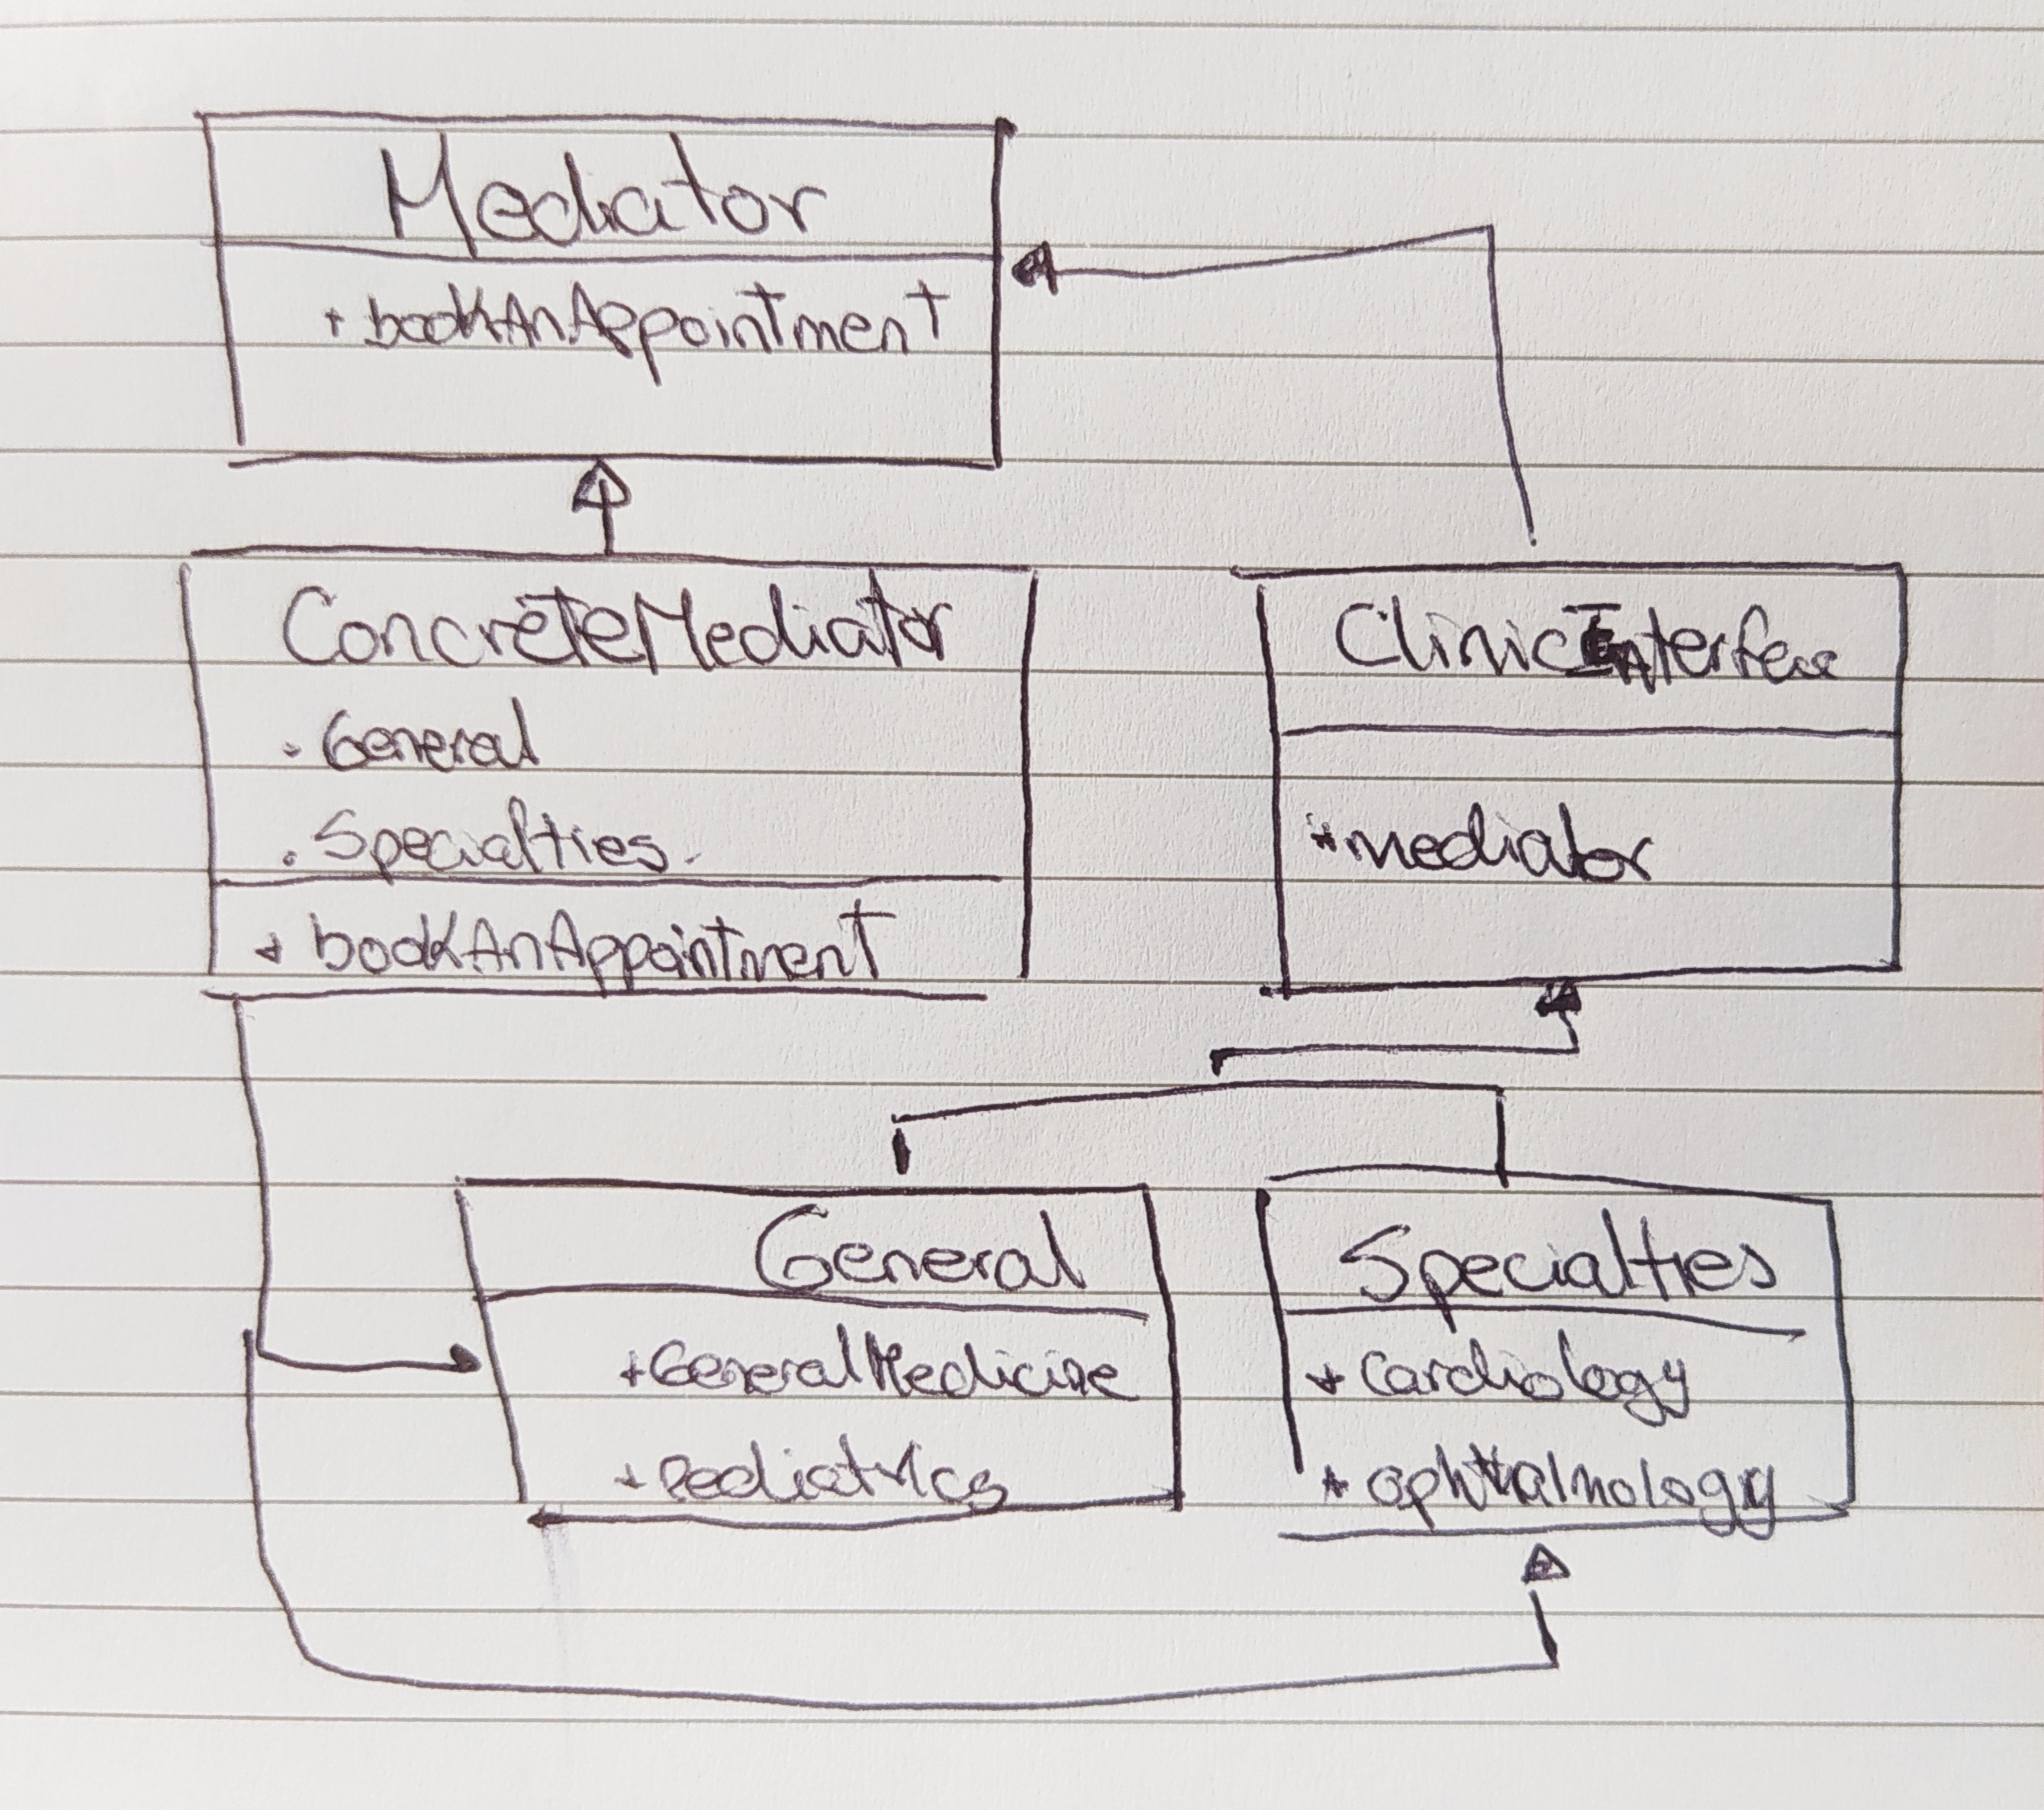 Mediator
+ bookAnAppointment
ConcreteMediator
. General
. Specialties.
+ bookAnAppointment
ClinicInterface
+mediator
General
+GeneralMedicine
+Pediatrics
Specialties
+ Cardiology
+ ophtalmology